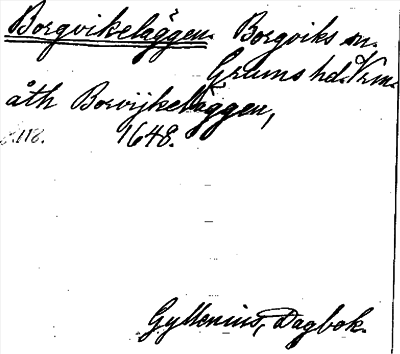 Borgvikeläggen. Borgviks sn.
Grums hd. Vrm.
åth Borvijkeläggen,
s. 118. 1648.
Gyllenius, Dagbok.